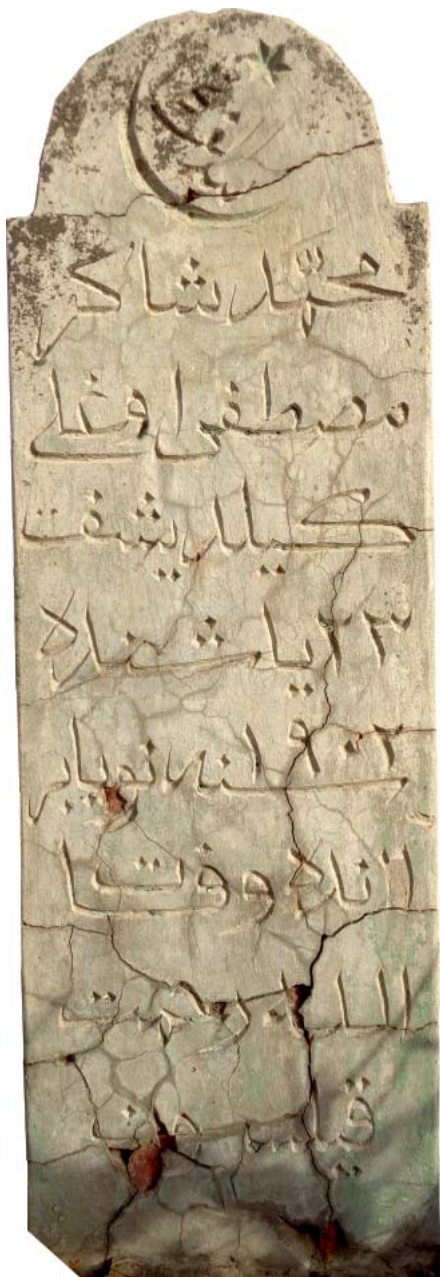 محمّد شاكر
مصطفى اوغلي
كيلديشفت
٢٣ ياشنده
١٩٠٢ سنه نويابر
١١نده وفات
الله رحمت
قيلسون